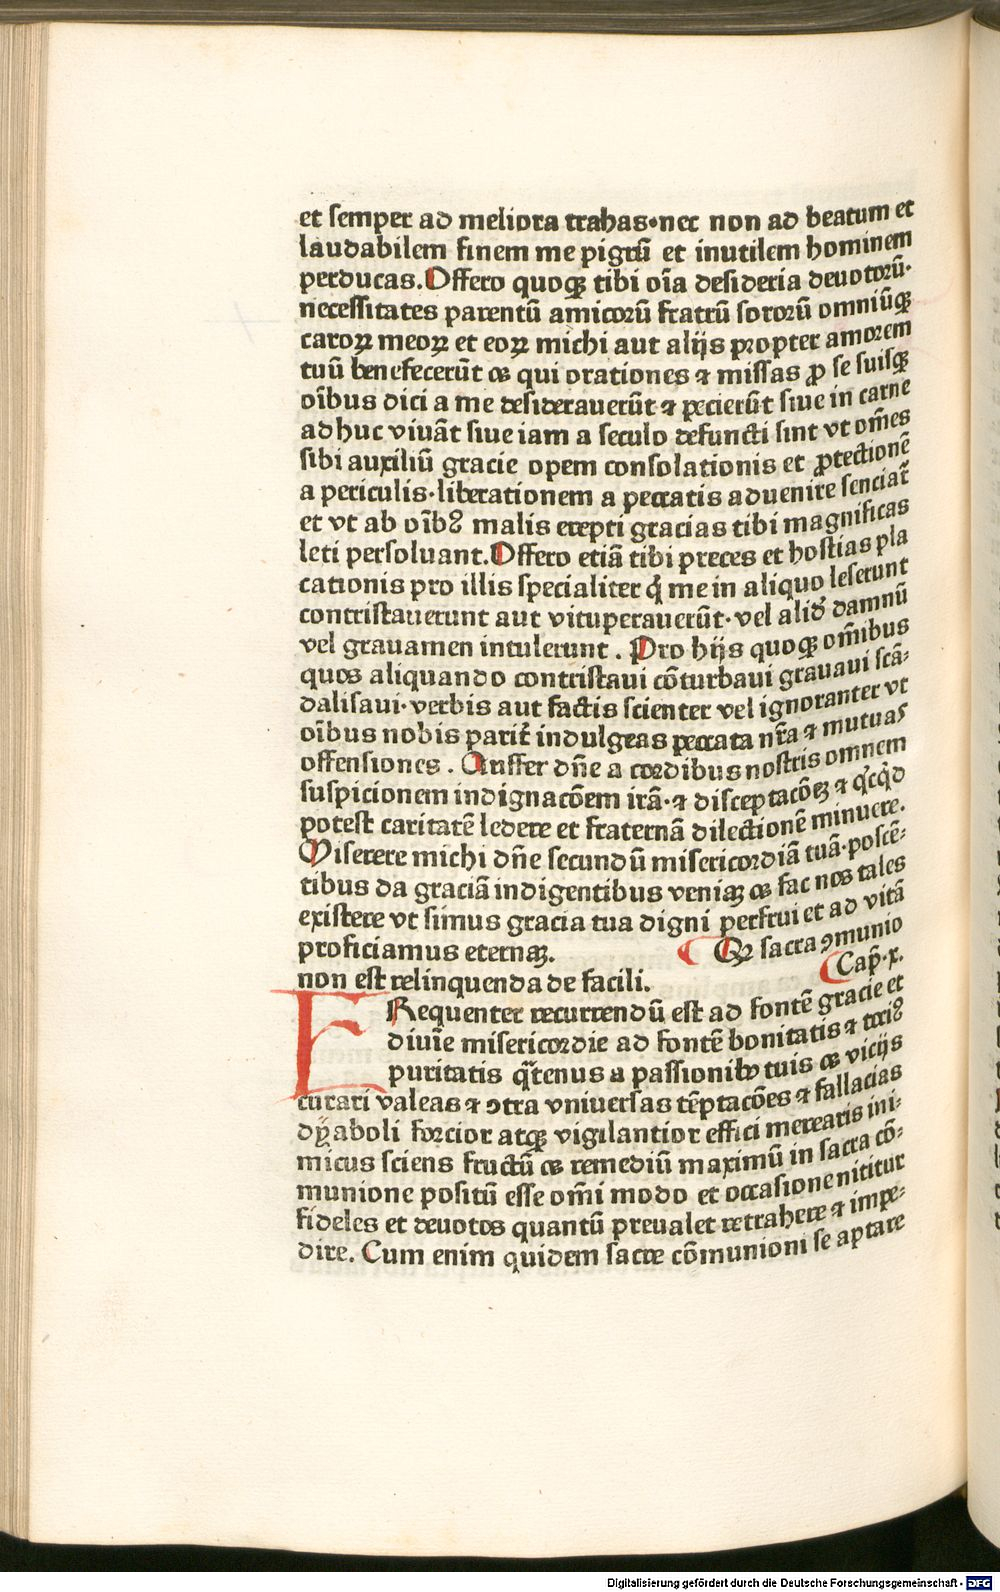 et semper ad meliora trahas·nec non ad beatum et
laudabilem finem me pigrū et inutilem hominem
perducas. Offero quoqꝫ tibi oīa desideria deuotorū·
necessitates parentū amicorū fratrū sororū omniūqꝫ
caroꝝ meoꝝ et eoꝝ michi aut alijs propter amorem
tuū benefecerūt os qui orationes ⁊ missas ꝓ se suisqꝫ
oībus dici a me desiderauerūt ⁊ pecierūt siue in carne
adhuc viuāt siue iam a seculo defuncti sint vt om̄es
sibi auxiliū gracie opem consolationis et ꝓtectionē
a periculis·liberationem a peccatis aduenire senciāt
et vt ab oībꝫ malis erepti gracias tibi magnificas
leti persoluant. Offero etiā tibi preces et hostias pla
cationis pro illis specialiter q̇ me in aliquo leserunt
contristauerunt aut vituperauerūt· vel aliḋ damnū
vel grauamen intulerunt . Pro hijs quoqꝫ om̄ibus
quos aliquando contristaui cōturbaui grauaui scā-
dalisaui·verbis aut factis scienter vel ignoranter vt
oībus nobis parit̄ indulgeas peccata nr̄a ⁊ mutuas
offensiones . Auffer dn̄e a cordibus nostris omnem
suspicionem indignacōem irā·⁊ disceptacōeꝫ ⁊ q̇cq̇d
potest caritatē ledere et fraternā dilectionē minuere.
Miserere michi dn̄e secundū misericordiā tuā·poscē-
tibus da graciā indigentibus veniaꝫ os fac nos tales
existere vt simus gracia tua digni perfrui et ad vitā
proficiamus eternaꝫ. Qꝫ sacra ꝯmunio
non est relinquenda de facili. Cap̄·x.
FRequenter recurrendū est ad fontē gracie et
diuīe misericordie ad fontē bonitatis ⁊ tociꝫ
puritatis q̄tenus a passionibꝫ tuis os vicijs
curari valeas ⁊ ꝯtra vniuersas tēptacōes ⁊ fallacias
dyaboli forcior atqꝫ vigilantior effici merearis ini-
micus sciens fructū os remediū maximū in sacra cō-
munione positū esse om̄i modo et occasione nititur
fideles et deuotos quantū preualet retrahere ⁊ impe-
dire. Cum enim quidem sacre cōmunioni se aptare
Digitalisierung gefördert durch die Deutsche Forschungsgemeinschaft - DFG